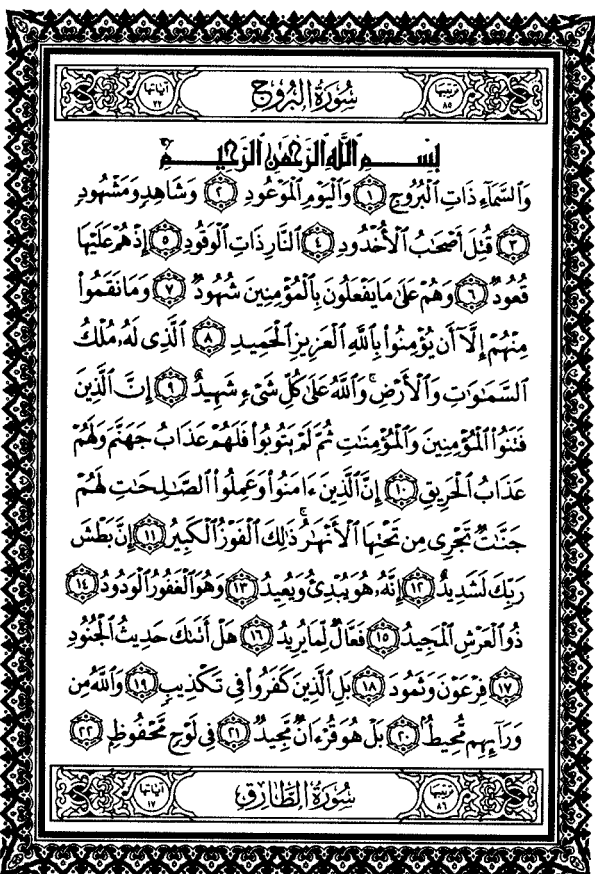 ترتيبها ٨٥ سُورَةُ البُرُوجِ آياتها ٢٢
بِسْمِ ٱللَّهِ ٱلرَّحْمَٰنِ ٱلرَّحِيمِ
وَٱلسَّمَآءِ ذَاتِ ٱلْبُرُوجِ ١ وَٱلْيَوْمِ ٱلْمَوْعُودِ ٢ وَشَاهِدٍ وَمَشْهُودٍ
٣ قُتِلَ أَصْحَٰبُ ٱلْأُخْدُودِ ٤ ٱلنَّارِ ذَاتِ ٱلْوَقُودِ ٥ إِذْ هُمْ عَلَيْهَا
قُعُودٌ ٦ وَهُمْ عَلَىٰ مَا يَفْعَلُونَ بِٱلْمُؤْمِنِينَ شُهُودٌ ٧ وَمَا نَقَمُوا۟
مِنْهُمْ إِلَّآ أَن يُؤْمِنُوا۟ بِٱللَّهِ ٱلْعَزِيزِ ٱلْحَمِيدِ ٨ ٱلَّذِى لَهُۥ مُلْكُ
ٱلسَّمَٰوَٰتِ وَٱلْأَرْضِ ۚ وَٱللَّهُ عَلَىٰ كُلِّ شَىْءٍ شَهِيدٌ ٩ إِنَّ ٱلَّذِينَ
فَتَنُوا۟ ٱلْمُؤْمِنِينَ وَٱلْمُؤْمِنَٰتِ ثُمَّ لَمْ يَتُوبُوا۟ فَلَهُمْ عَذَابُ جَهَنَّمَ وَلَهُمْ
عَذَابُ ٱلْحَرِيقِ ١٠ إِنَّ ٱلَّذِينَ ءَامَنُوا۟ وَعَمِلُوا۟ ٱلصَّٰلِحَٰتِ لَهُمْ
جَنَّٰتٌ تَجْرِى مِن تَحْتِهَا ٱلْأَنْهَٰرُ ۚ ذَٰلِكَ ٱلْفَوْزُ ٱلْكَبِيرُ ١١ إِنَّ بَطْشَ
رَبِّكَ لَشَدِيدٌ ١٢ إِنَّهُۥ هُوَ يُبْدِئُ وَيُعِيدُ ١٣ وَهُوَ ٱلْغَفُورُ ٱلْوَدُودُ ١٤
ذُو ٱلْعَرْشِ ٱلْمَجِيدُ ١٥ فَعَّالٌ لِّمَا يُرِيدُ ١٦ هَلْ أَتَىٰكَ حَدِيثُ ٱلْجُنُودِ
١٧ فِرْعَوْنَ وَثَمُودَ ١٨ بَلِ ٱلَّذِينَ كَفَرُوا۟ فِى تَكْذِيبٍ ١٩ وَٱللَّهُ مِن
وَرَآئِهِم مُّحِيطٌ ٢٠ بَلْ هُوَ قُرْءَانٌ مَّجِيدٌ ٢١ فِى لَوْحٍ مَّحْفُوظٍ ٢٢
ترتيبها ٨٦ سُورَةُ الطَّارِقِ آياتها ١٧